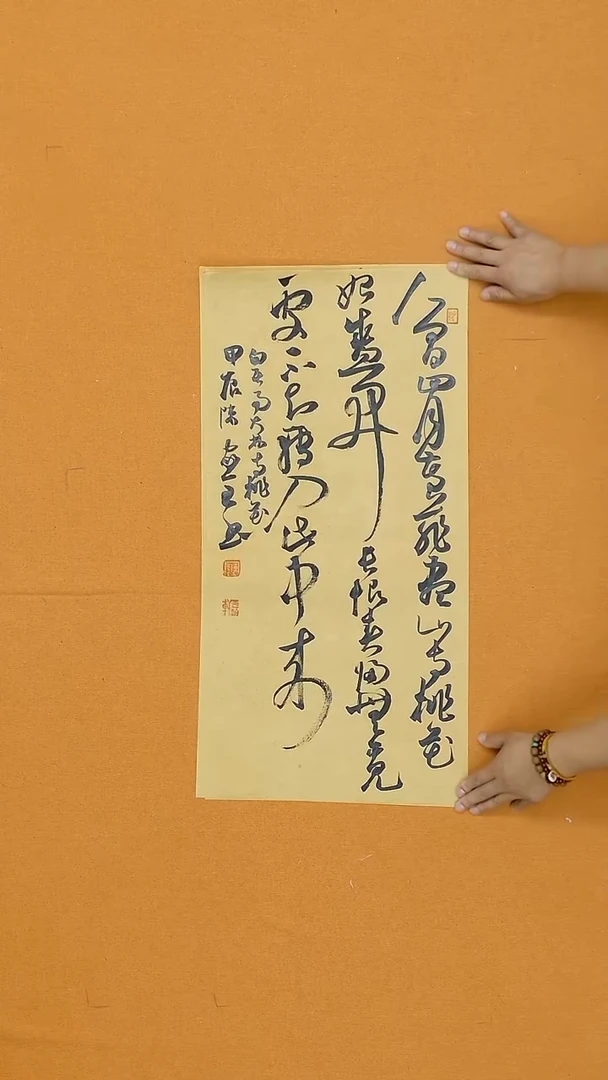 人间四月芳菲尽山寺桃花
始盛开长恨春归无觅
处不知转入此中来
白居易大林寺桃花
甲辰